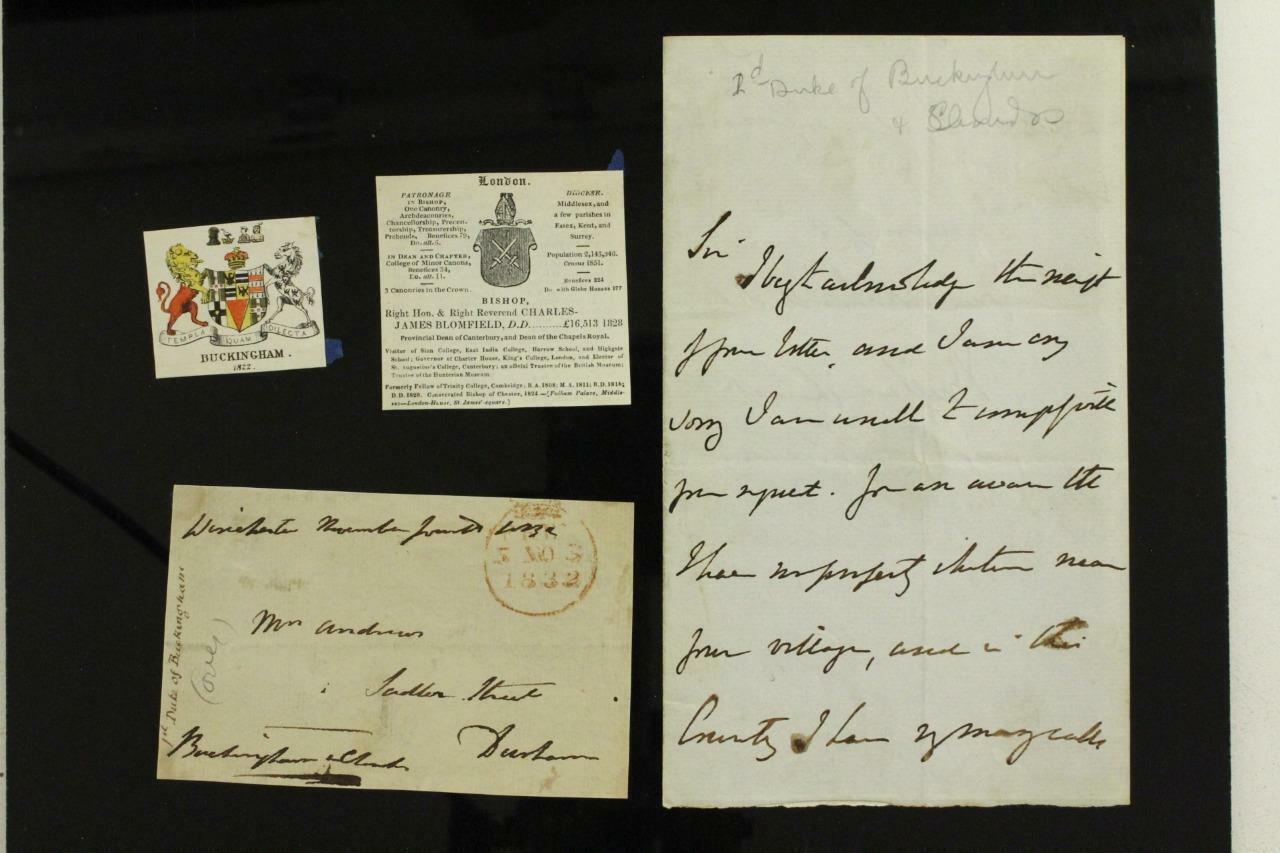 TEMPLA QUAM DILECTA
BUCKINGHAM.
1822.
London.
PATRONAGE
IN BISHOP,
One Canonry,
Archdeaconries,
Chancellorship, Precen-
torship, Treasurership,
Prebends, Benefices 79,
Do. alt. 6.
IN DEAN AND CHAPTER,
College of Minor Canons,
Benefices 34,
Do. alt. 11.
3 Canonries in the Crown.
DIOCESE.
Middlesex, and
a few parishes in
Essex, Kent, and
Surrey.
Population 2,143,340.
Census 1851.
Benefices 324
Do. with Glebe Houses 177
BISHOP,
Right Hon. & Right Reverend CHARLES-
JAMES BLOMFIELD, D.D..........£16,513 1828
Provincial Dean of Canterbury, and Dean of the Chapels Royal.
Visitor of Sion College, East India College, Harrow School, and Highgate
School; Governor of Charter House, King's College, London, and Elector of
St. Augustine's College, Canterbury; an official Trustee of the British Museum;
Trustee of the Hunterian Museum.
Formerly Fellow of Trinity College, Cambridge; B.A. 1808; M.A. 1811; B.D. 1818;
D.D. 1820. Consecrated Bishop of Chester, 1824.—[Fulham Palace, Middle-
sex—London-House, St. James'-square.]
Winchester November fourth 1832
5 NO 5
1832
Mrs Andrews
Sadler Street
Durham
Buckingham & Chandos
1st Duke of Buckingham
(over)
2d Duke of Buckingham
& Chandos
Sir
I beg to acknowledge the receipt
of your letter, and I am very
sorry I am unable to comply with
your request. You are aware that
I have no property whatever near
your village, and in this
County I have so many calls